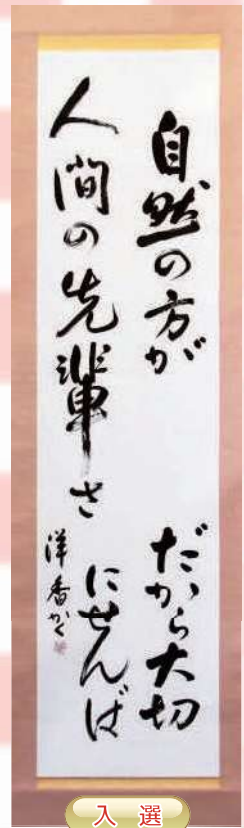 自然の方が
人間の先輩さ
だから大切
にせんば
洋香かく
入選